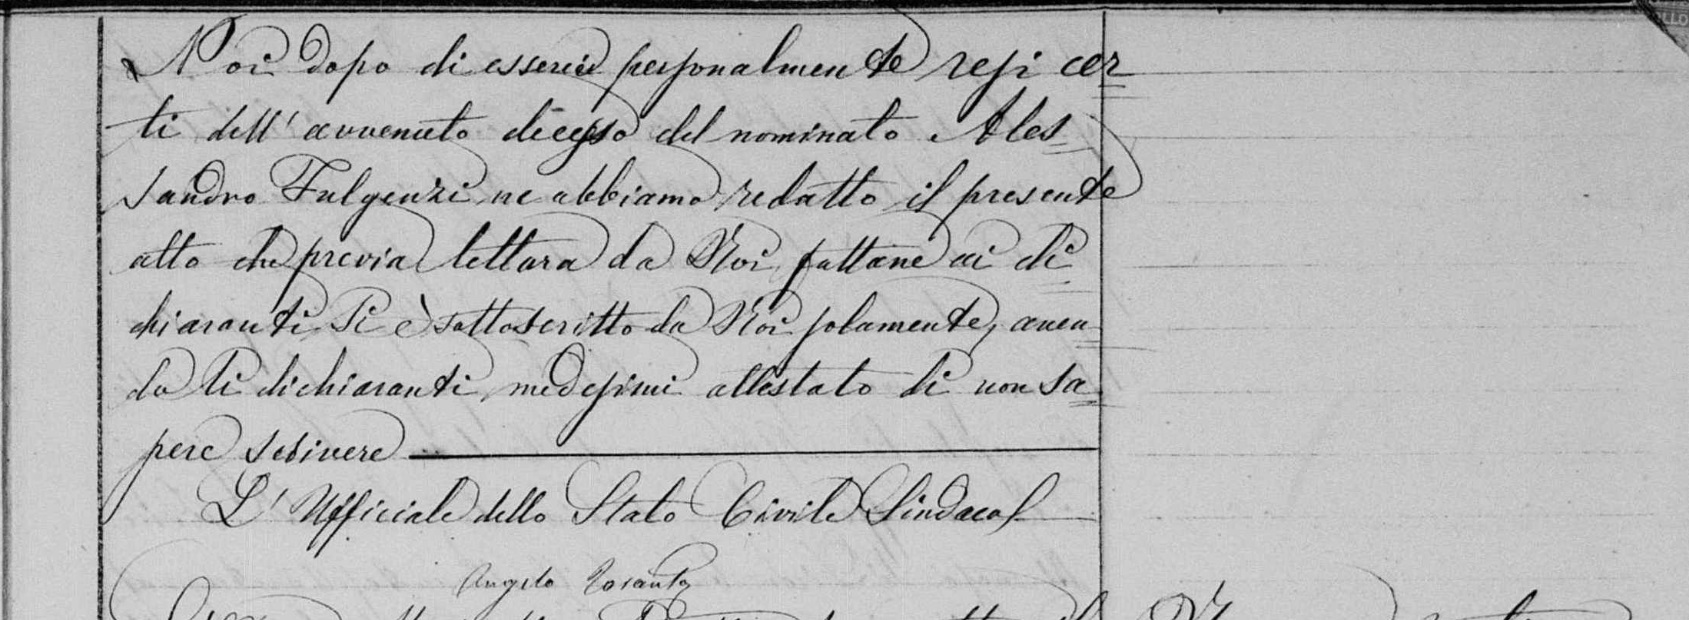 Noi dopo di esserci personalmente resi cer=
ti dell' avvenuto decesso del nominato Ales=
sandro Fulgenzi, ne abbiamo redatto il presente
atto che previa lettura da Noi fattane ai di=
chiaranti si è sottoscritto da Noi solamente, aven=
do li dichiaranti medesimi attestato di non sa=
pere scrivere
L' Ufficiale dello Stato Civile Sindaco
Angelo